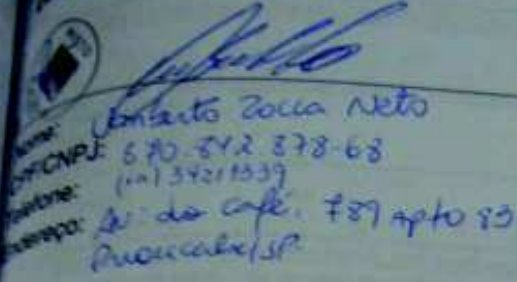 Nome: Zocca Neto
CPF/CNPJ: 870.842 878-68
Telefone: (19) 34219339
Endereço: Av: do café. 789 apto 83
Piracicaba/SP